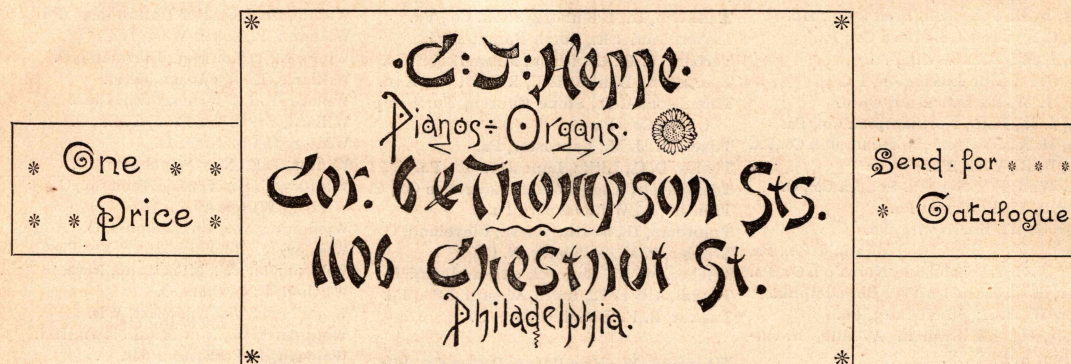 One
Price
·C:J:Heppe·
Pianos÷Organs.
Cor. 6 & Thompson Sts.
1106 Chestnut St.
Philadelphia.
Send·for
Catalogue